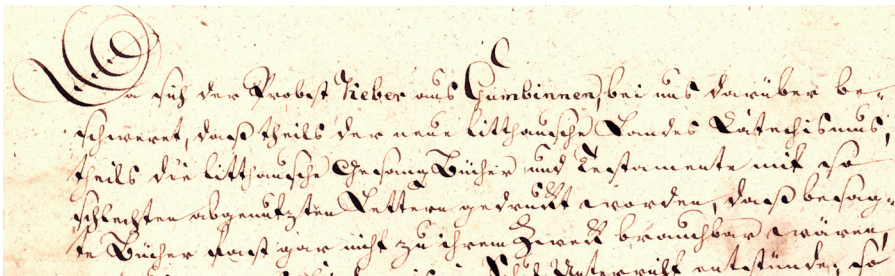 Da sich der Probst Zieber aus Gumbinnen, bei uns darüber be-
schweret, daß theils der neue litthausche Landes Catechismus,
theils die litthausche Gesang Bücher und Testamente mit so
schlechten abgenutzten Lettern gedruckt worden, daß besag-
te Bücher fast gar nicht zu ihrem Zweck brauchbar wären,
entstünde, so